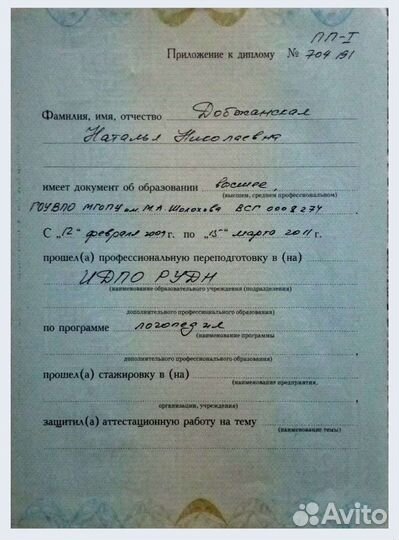 ПП-I
Приложение к диплому № 704 191
Фамилия, имя, отчество Добжанская
Наталья Николаевна
имеет документ об образовании высшее
(высшем, среднем профессиональном)
ГОУВПО МГОПУ им. М.А. Шолохова ВСГ 0008274
С „12" февраля 2009 г. по „15" марта 2011 г.
прошел(а) профессиональную переподготовку в (на)
ИДПО РУДН
(наименование образовательного учреждения (подразделения)
дополнительного профессионального образования)
по программе логопедия
(наименование программы
дополнительного профессионального образования)
прошел(а) стажировку в (на)
(наименование предприятия,
организации, учреждения)
защитил(а) аттестационную работу на тему
(наименование темы)
Avito